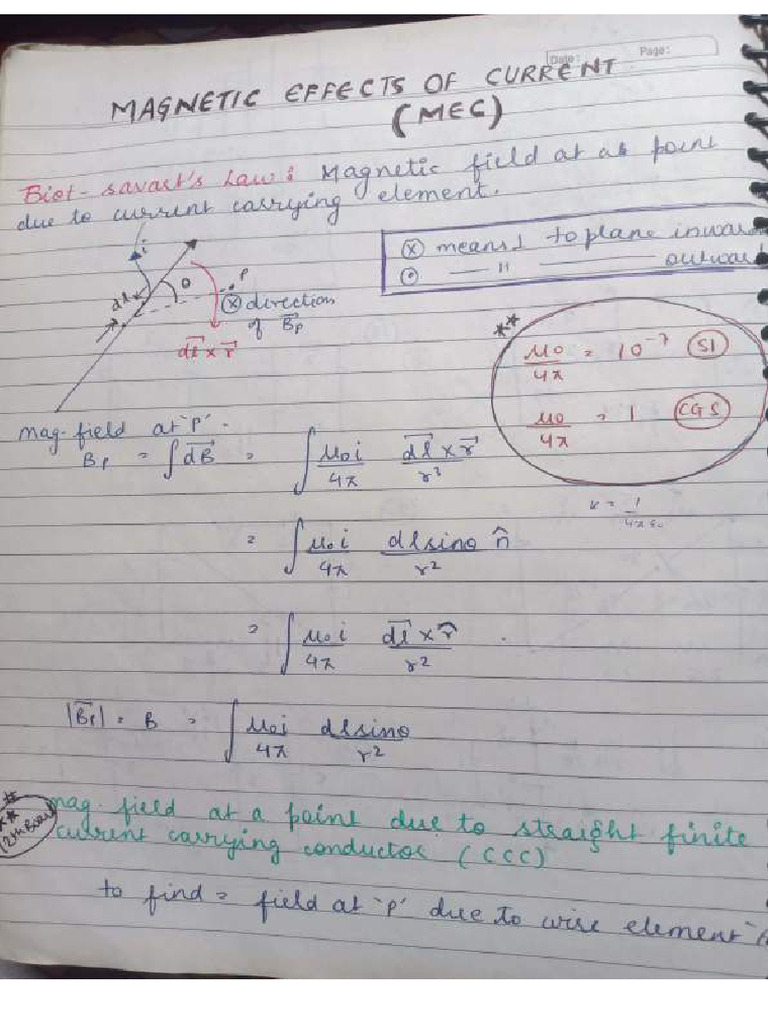 Date: Page:
MAGNETIC EFFECTS OF CURRENT
(MEC)
Biot-Savart's Law: Magnetic field at as point
due to current carrying element.
⊗ means ⊥ to plane inward
⊙ — " — outward
i
dl θ P
⊗ direction
of B⃗p
d⃗l × r⃗
**
μ0/4π = 10⁻⁷ (SI)
μ0/4π = 1 (CGS)
K = 1/4πε0
mag. field at 'P'.
Bp = ∫d⃗B = ∫ μ0i/4π d⃗l × r⃗/r³
= ∫ μ0i/4π dlsinθ n̂/r²
= ∫ μ0i/4π d⃗l × r̂/r² .
|B⃗p| = B = ∫ μ0i/4π dlsinθ/r²
mag. field at a point due to straight finite
current carrying conductor (CCC)
to find = field at 'P' due to wire element